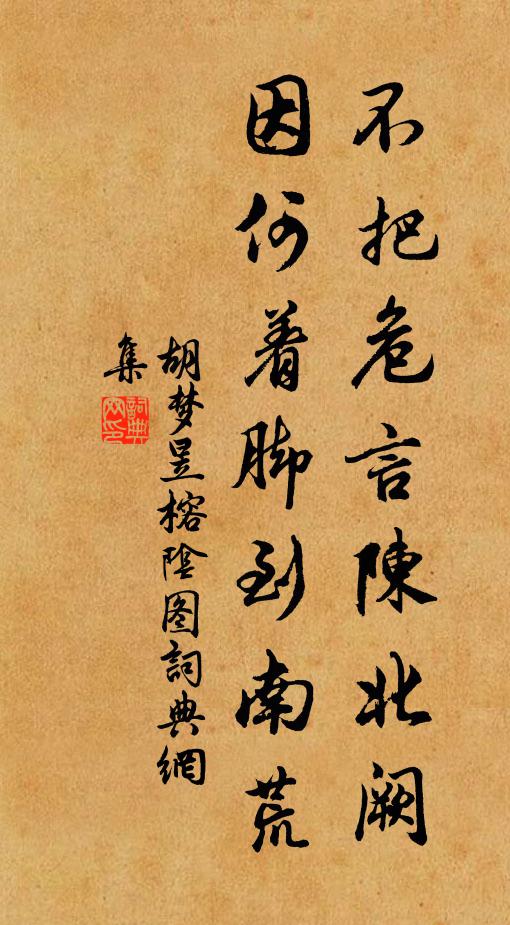 不把危言陳北阙
因何着脚到南荒
胡梦昱榕陰图詞典網
集
詞典網印